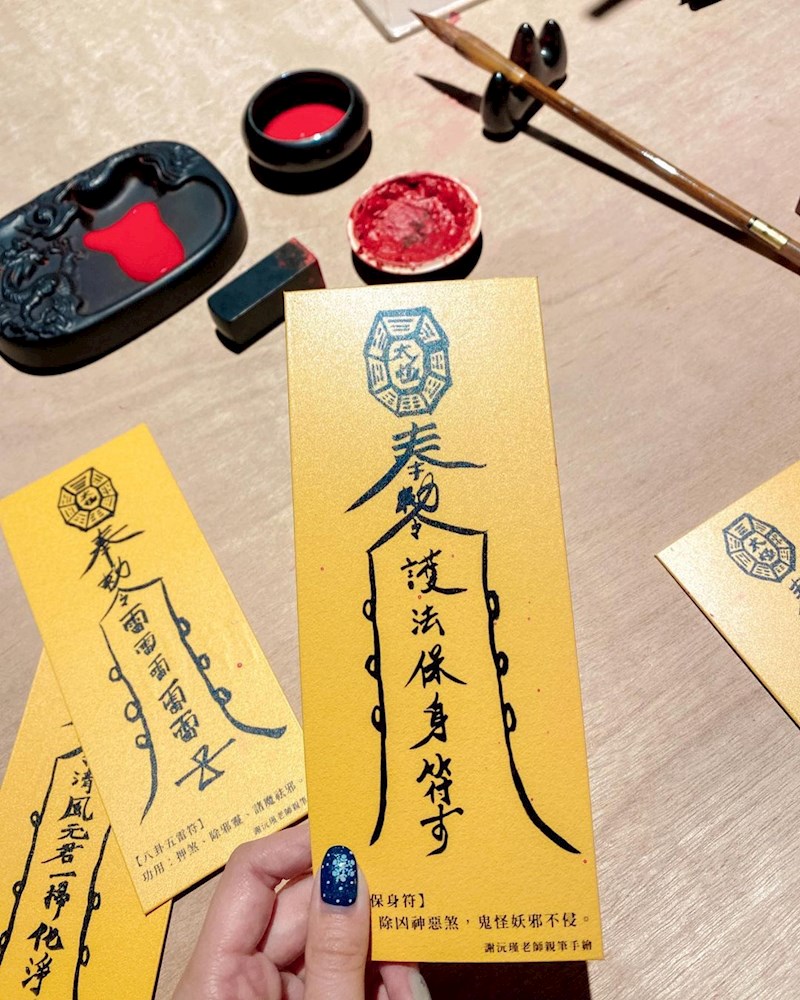 太極
奉
勅令
護法保身符
保身符】
除凶神惡煞,鬼怪妖邪不侵。
謝沅瑾老師親筆手繪
奉
勅令
雷雷雷雷雷
【八卦五雷符】
功用:押煞、除邪靈、諸魔祛邪。
謝沅瑾老師親筆
清風元君一掃化淨
太極